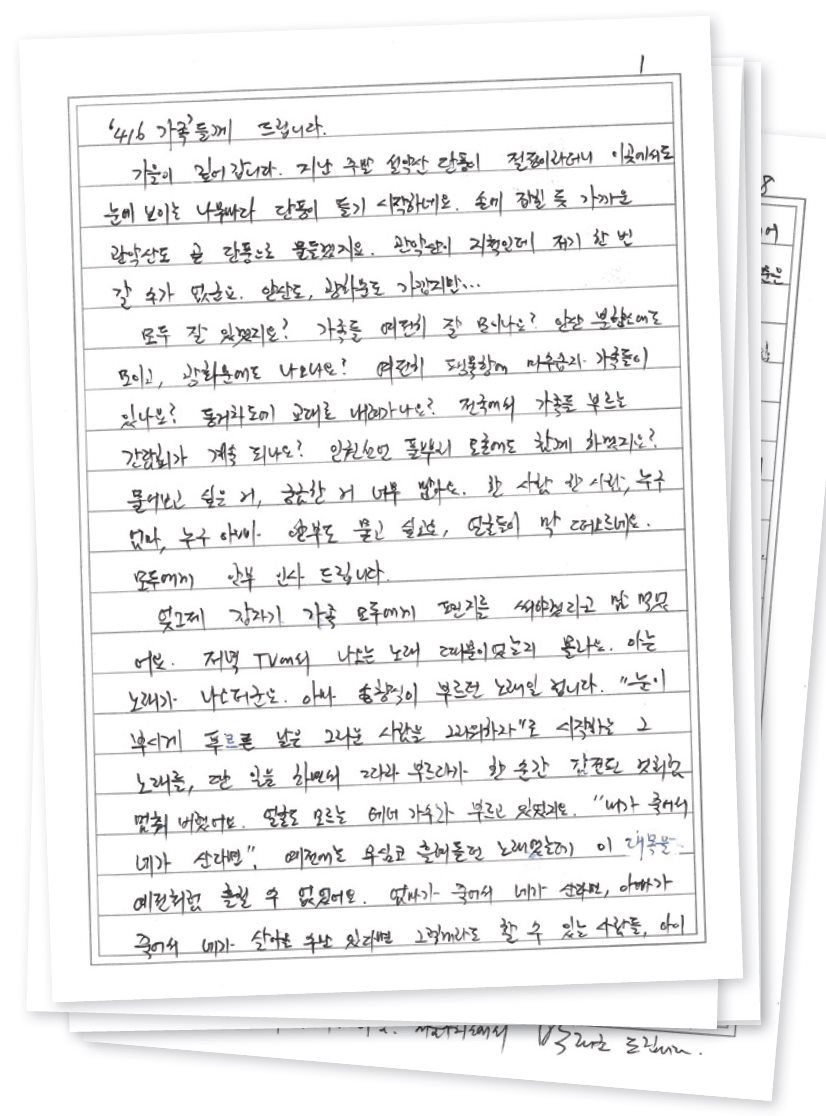 1
'416 가족'들께 드립니다.
가을이 깊어 갑니다. 지난 주말 설악산 단풍이 절정이라더니 이곳에서도
눈에 보이는 나무마다 단풍이 들기 시작하네요. 손에 잡힐 듯 가까운
관악산도 곧 단풍으로 물들겠지요. 관악산이 지척인데 저기 한 번
갈 수가 없군요. 안산도, 광화문도 가깝지만...
모두 잘 있겠지요? 가족들 여전히 잘 모이나요? 안산 분향소에도
모이고, 광화문에도 나오나요? 여전히 팽목항에 미수습자 가족들이
있나요? 동거차도에 교대로 내려가나요? 전국에서 가족들 부르는
간담회가 계속 되나요? 인권선언 풀뿌리 토론에도 함께 하겠지요?
물어보고 싶은 거, 궁금한 거 너무 많아요. 한 사람 한 사람, 누구
엄마, 누구 아빠 안부도 묻고 싶고요, 얼굴들이 막 떠오르네요.
모두에게 안부 인사 드립니다.
엊그제 갑자기 가족 모두에게 편지를 써야겠다고 맘 먹었
어요. 저녁 TV에서 나오는 노래 때문이었는지 몰라요. 아는
노래가 나오더군요. 아마 송창식이 부르던 노래일 겁니다. "눈이
부시게 푸르른 날은 그리운 사람을 그리워하자"로 시작하는 그
노래를, 딴 일을 하면서 따라 부르다가 한 순간 감전된 것처럼
멈춰 버렸어요. 얼굴도 모르는 테너 가수가 부르고 있었지요. "내가 죽어서
네가 산다면", 예전에는 무심코 흘려듣던 노래였는데 이 대목을
예전처럼 흘릴 수 없었어요. 엄마가 죽어서 네가 산다면, 아빠가
죽어서 네가 살아올 수만 있다면 그렇게라도 할 수 있는 사람들, 아이
8
드립니다.